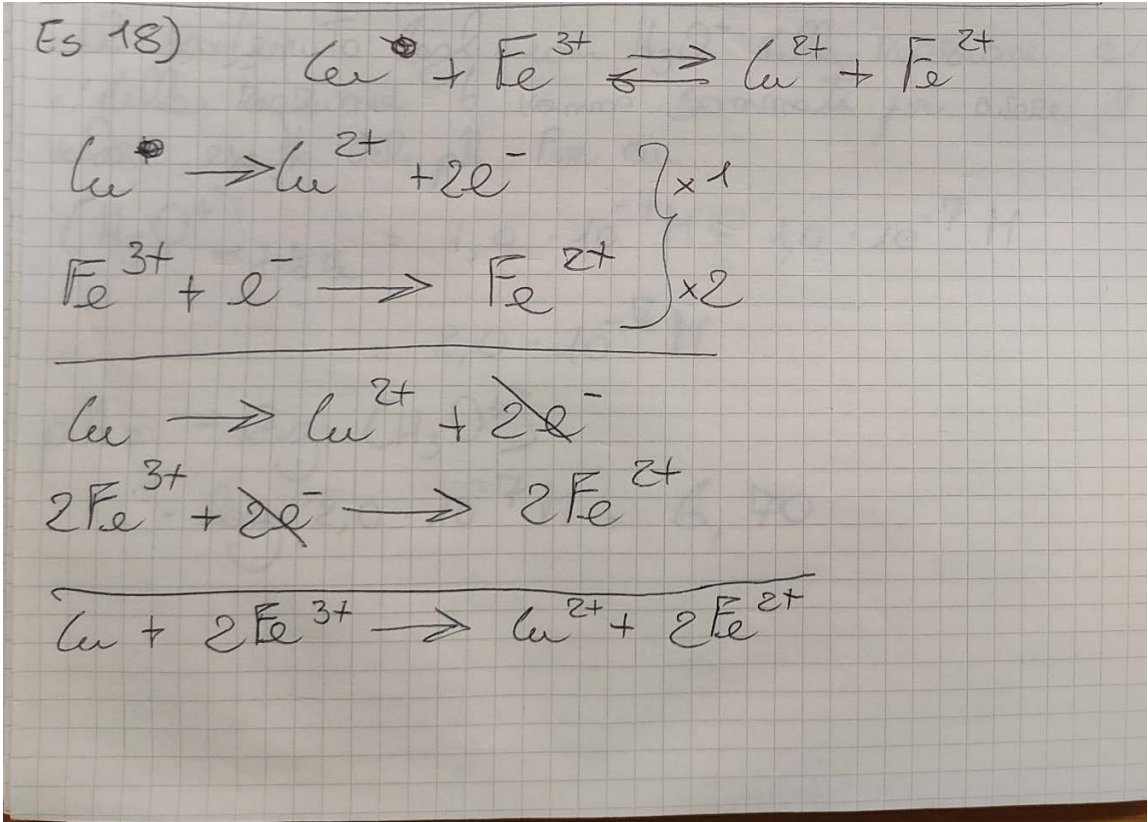 Es 18)
Cu + Fe³⁺ ⇄ Cu²⁺ + Fe²⁺
Cu → Cu²⁺ + 2e⁻ } x1
Fe³⁺ + e⁻ → Fe²⁺ } x2
Cu → Cu²⁺ + 2e⁻
2Fe³⁺ + 2e⁻ → 2Fe²⁺
Cu + 2Fe³⁺ → Cu²⁺ + 2Fe²⁺